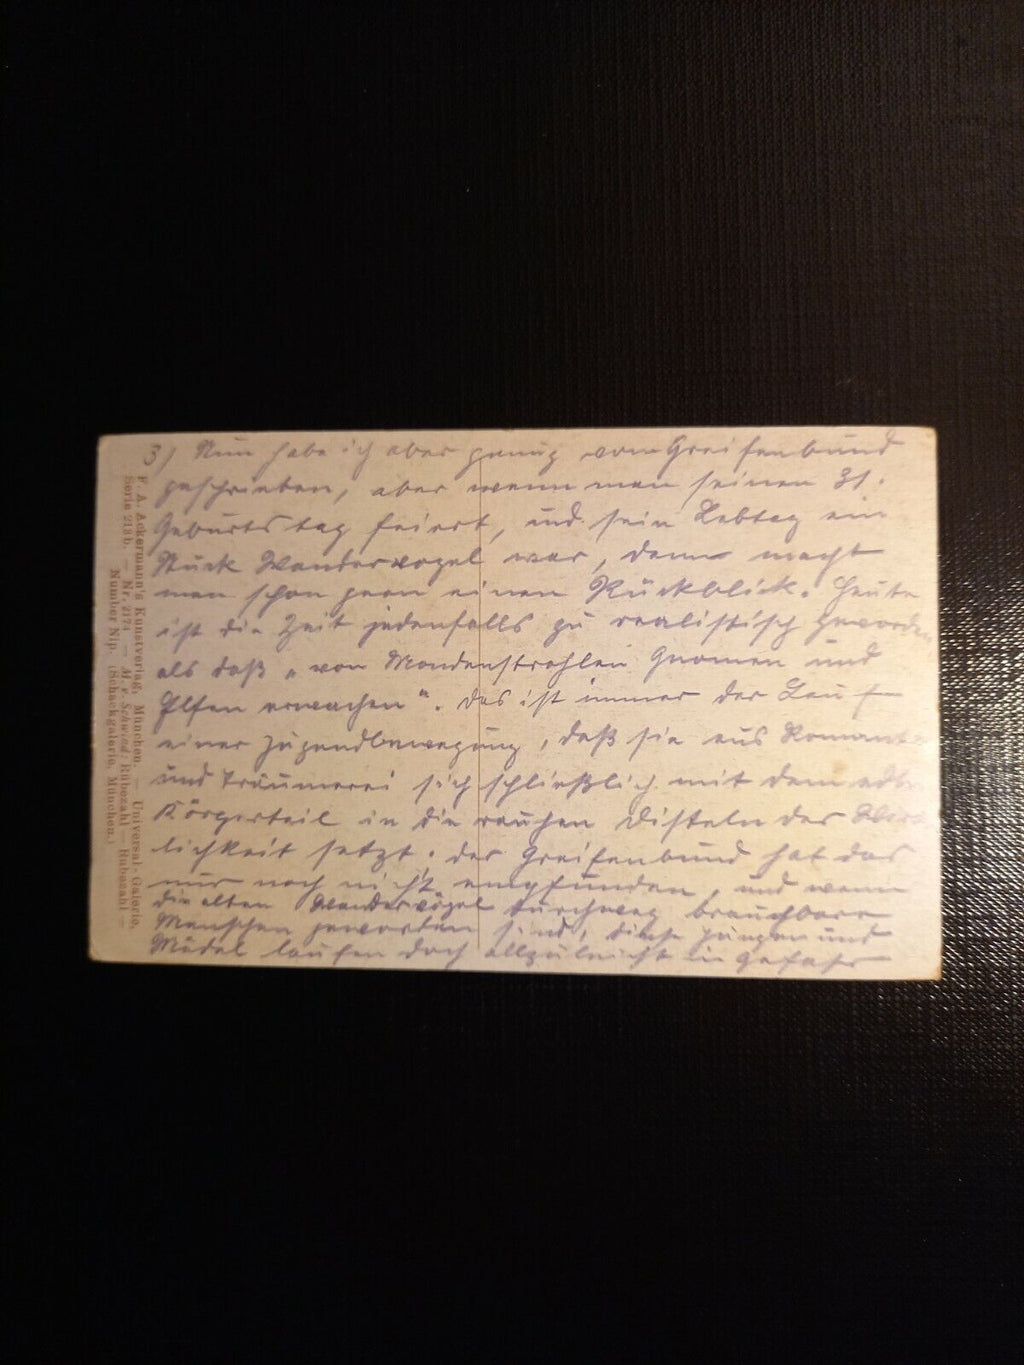 3) Nun habe ich aber genug vom Greifenbund
geschrieben, aber wenn man seinen 31.
Geburtstag feiert, und sein Lebtag ein
Stück Wandervogel war, dann macht
man schon gern einen Rückblick. Heute
ist die Zeit jedenfalls zu realistisch geworden
als daß „von Mondenstrahlen Gnomen und
Elfen erwachen“. Das ist immer der Lauf
einer Jugendbewegung, daß sie aus Romant
und Träumerei sich schließlich mit dem
Körperteil in die rauhen Disteln der
lichkeit setzt. Der Greifenbund hat das
nur noch nicht empfunden, und wenn
die alten Wandervögel durchweg brauchbare
Menschen geworden sind, diese Jungen und
Mädel laufen doch allzuleicht in Gefahr
F. A. Ackermann's Kunstverlag, München. — Universal-Galerie,
Serie 218b. — Nr. 2174 — M. v. Schwind: Rübezahl — Rubezahl —
Number Nip. (Schackgalerie, München.)